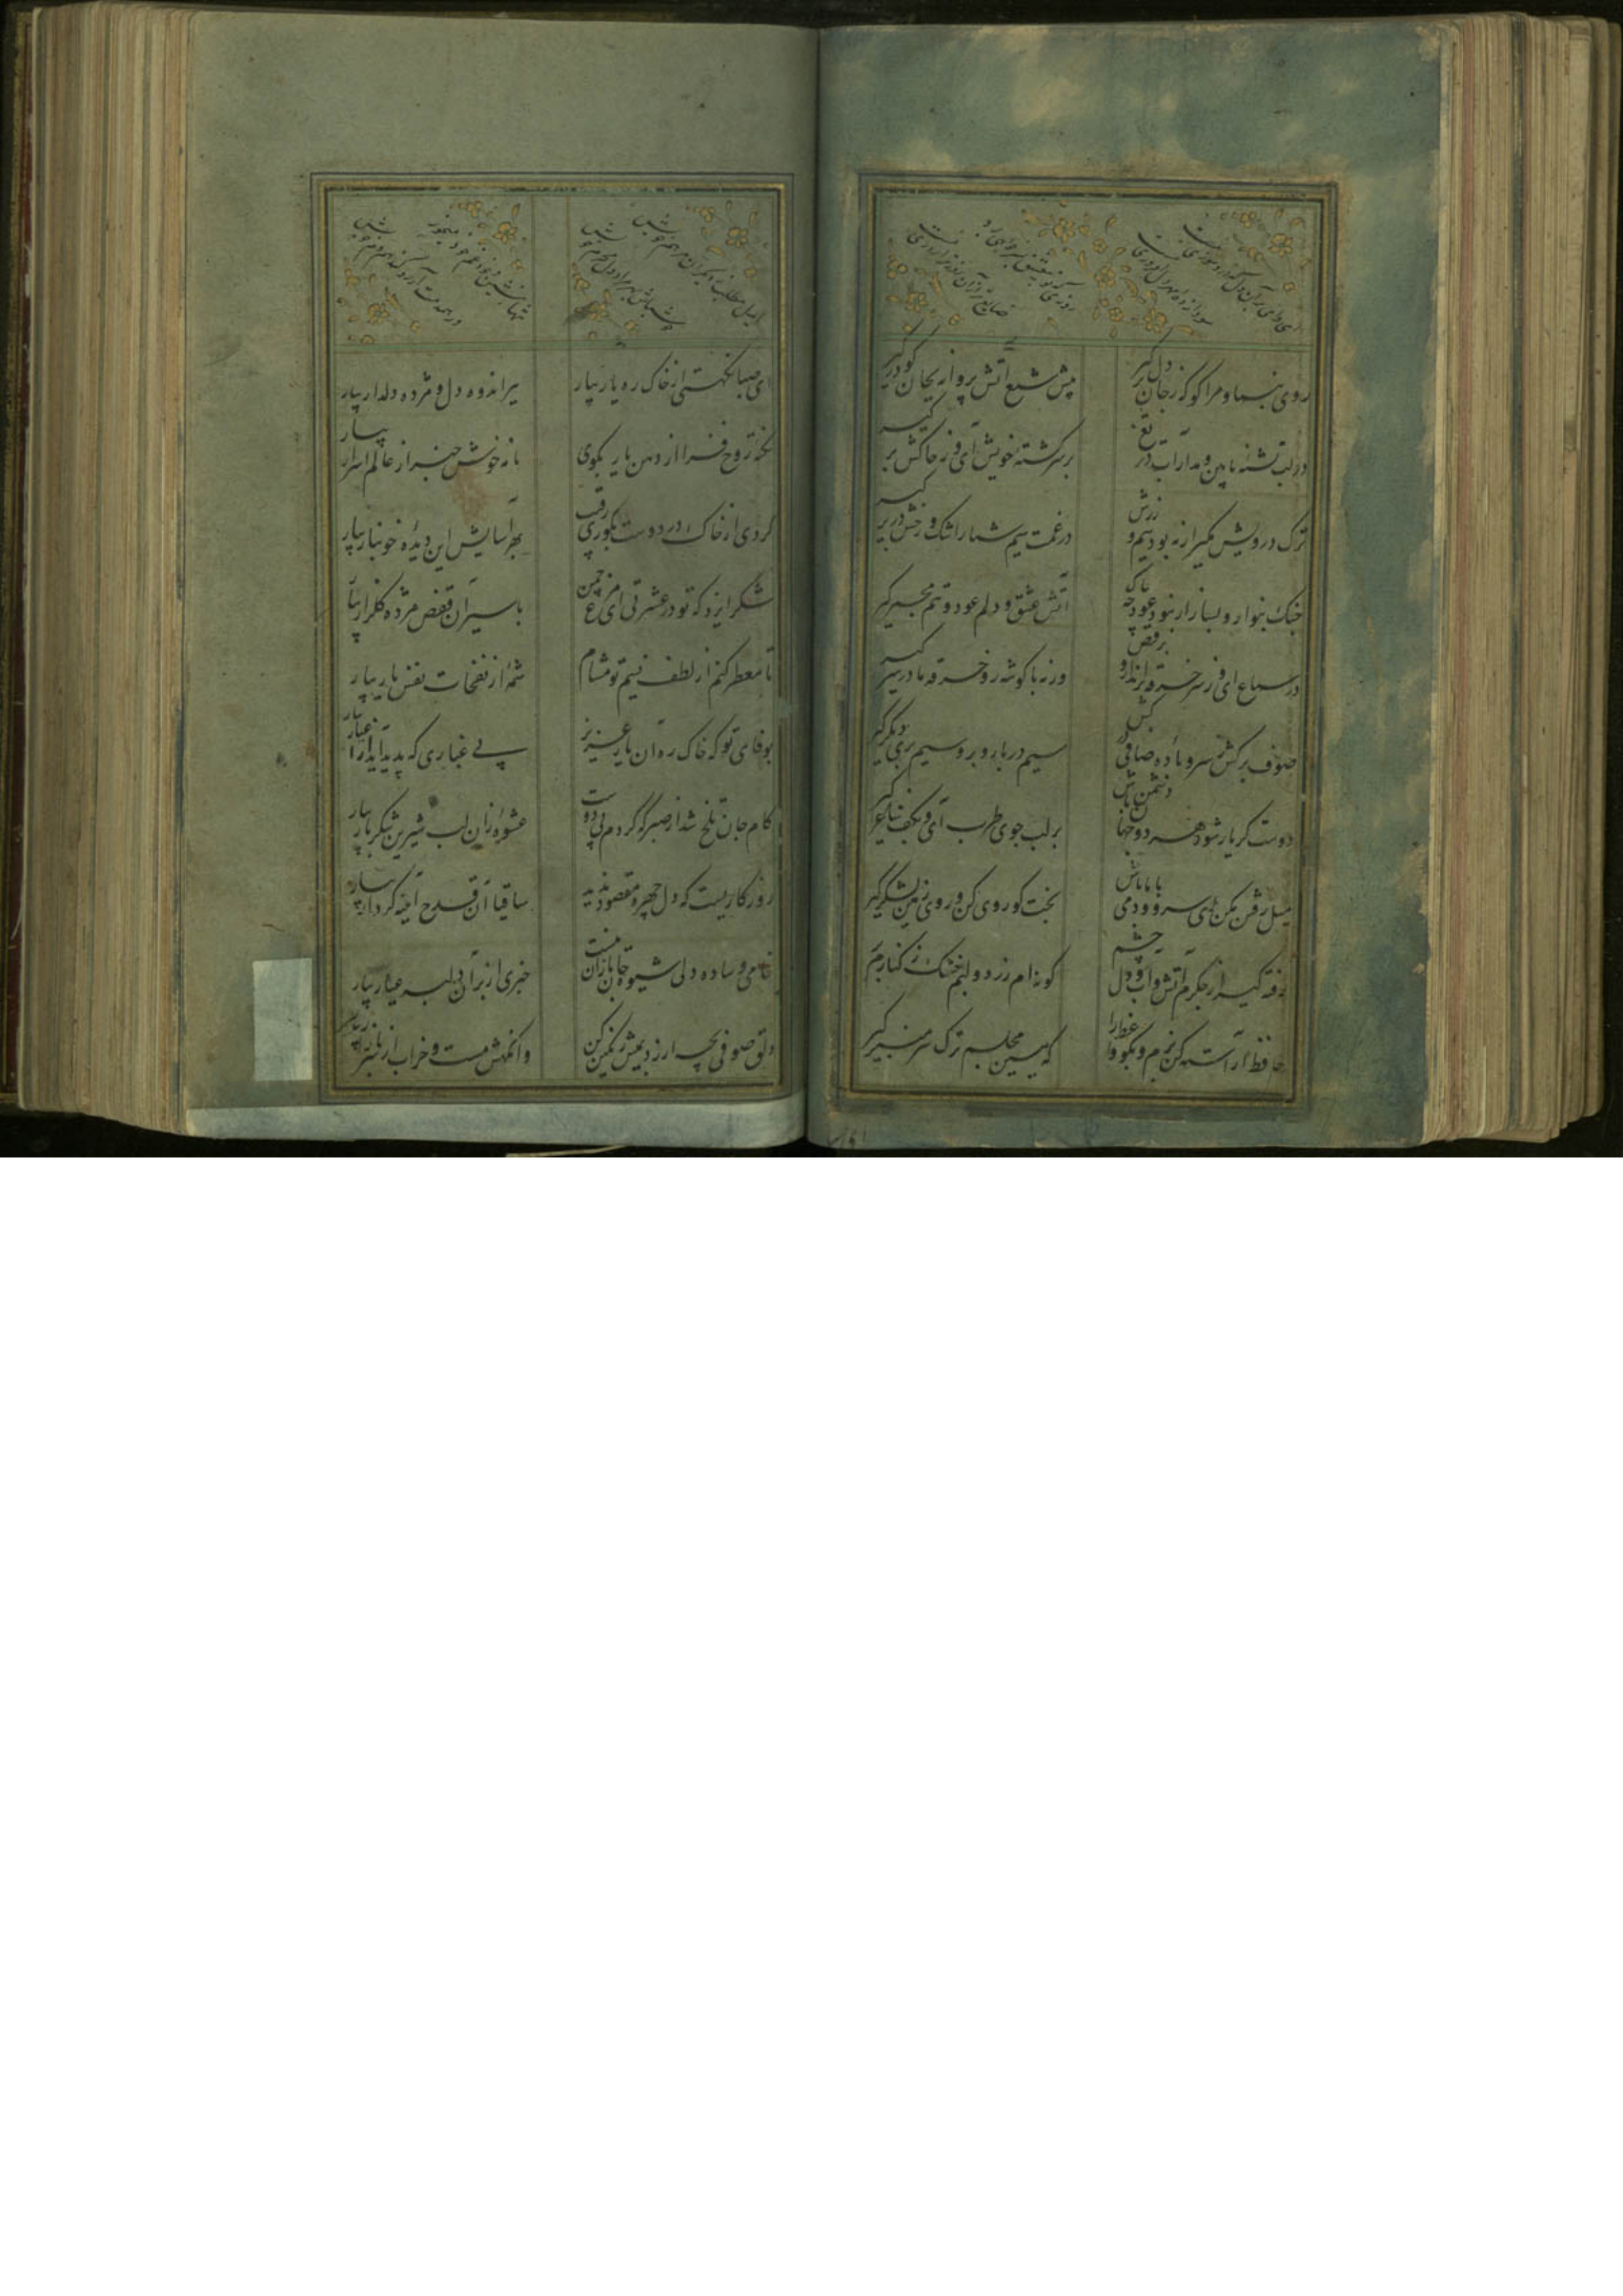 ای وای بر آن دل که درو سوزی نیست
سودازده مهر دل افروزی نیست
روزی که تو بی عشق بسر خواهی برد
ضایع تر از آن روز ترا روزی نیست
روی بنما و مرا گو که ز جان دل برگیر
پیش شمع آتش پروانه بجان گو درگیر
در لب تشنه ما بین و مدار آب دریغ
بر سر کشته خویش آی و ز خاکش برگیر
ترک درویش مگیر ار نبود سیم و زرش
در غمت سیم شمار اشک و رخش در زر گیر
چنگ بنواز و بساز ار نبود عود چه باک
آتش عشق و دلم عود و تنم مجمر گیر
در سماع آی و ز سر خرقه برانداز و برقص
ورنه با گوشه رو و خرقه ما در سر گیر
صوف برکش ز سر و باده صافی درکش
سیم در باز و بزر سیم بری در بر گیر
دوست گر یار شود هر دو جهان دشمن باش
بر لب جوی طرب آی و بکف ساغر گیر
میل رفتن مکن ای سرو و دمی با ما باش
بخت گو روی کن و روی زمین لشکر گیر
رفته گیر از جگرم آتش و آب دل و چشم
گونه ام زرد و لبم خشک ز کنارم تر گیر
حافظ آراسته کن بزم و بگو واعظ را
که ببین مجلسم و ترک سر منبر گیر
ای دل مطلب ز دیگران مرهم خویش
خود باش بهر درد دلی محرم خویش
ای صبا نکهتی از خاک ره یار بیار
ببر اندوه دل و مژده دلدار بیار
نکته روح فزا از دهن یار بگوی
نامه خوش خبر از عالم اسرار بیار
گردی از خاک در دوست بکوری رقیب
بهر آسایش این دیده خونبار بیار
شکر ایزد که تو در عشرتی ای مرغ چمن
باسیران قفص مژده گلزار بیار
تا معطر کنم از لطف نسیم تو مشام
شمه از نفحات نفس یار بیار
بوفای تو که خاک ره آن یار عزیز
بی غباری که پدید آید از اغیار بیار
کام جان تلخ شد از صبر که کردم بی دوست
عشوه زان لب شیرین شکربار بیار
روزگاریست که دل چهره مقصود ندید
ساقیا آن قدح آینه کردار بیار
خامی و ساده دلی شیوه جانبازان نیست
خبری از بر آن دلبر عیار بیار
دلق صوفی بچه ارزد بمیش رنگین کن
وانگهش مست و خراب از سر بازار بیار